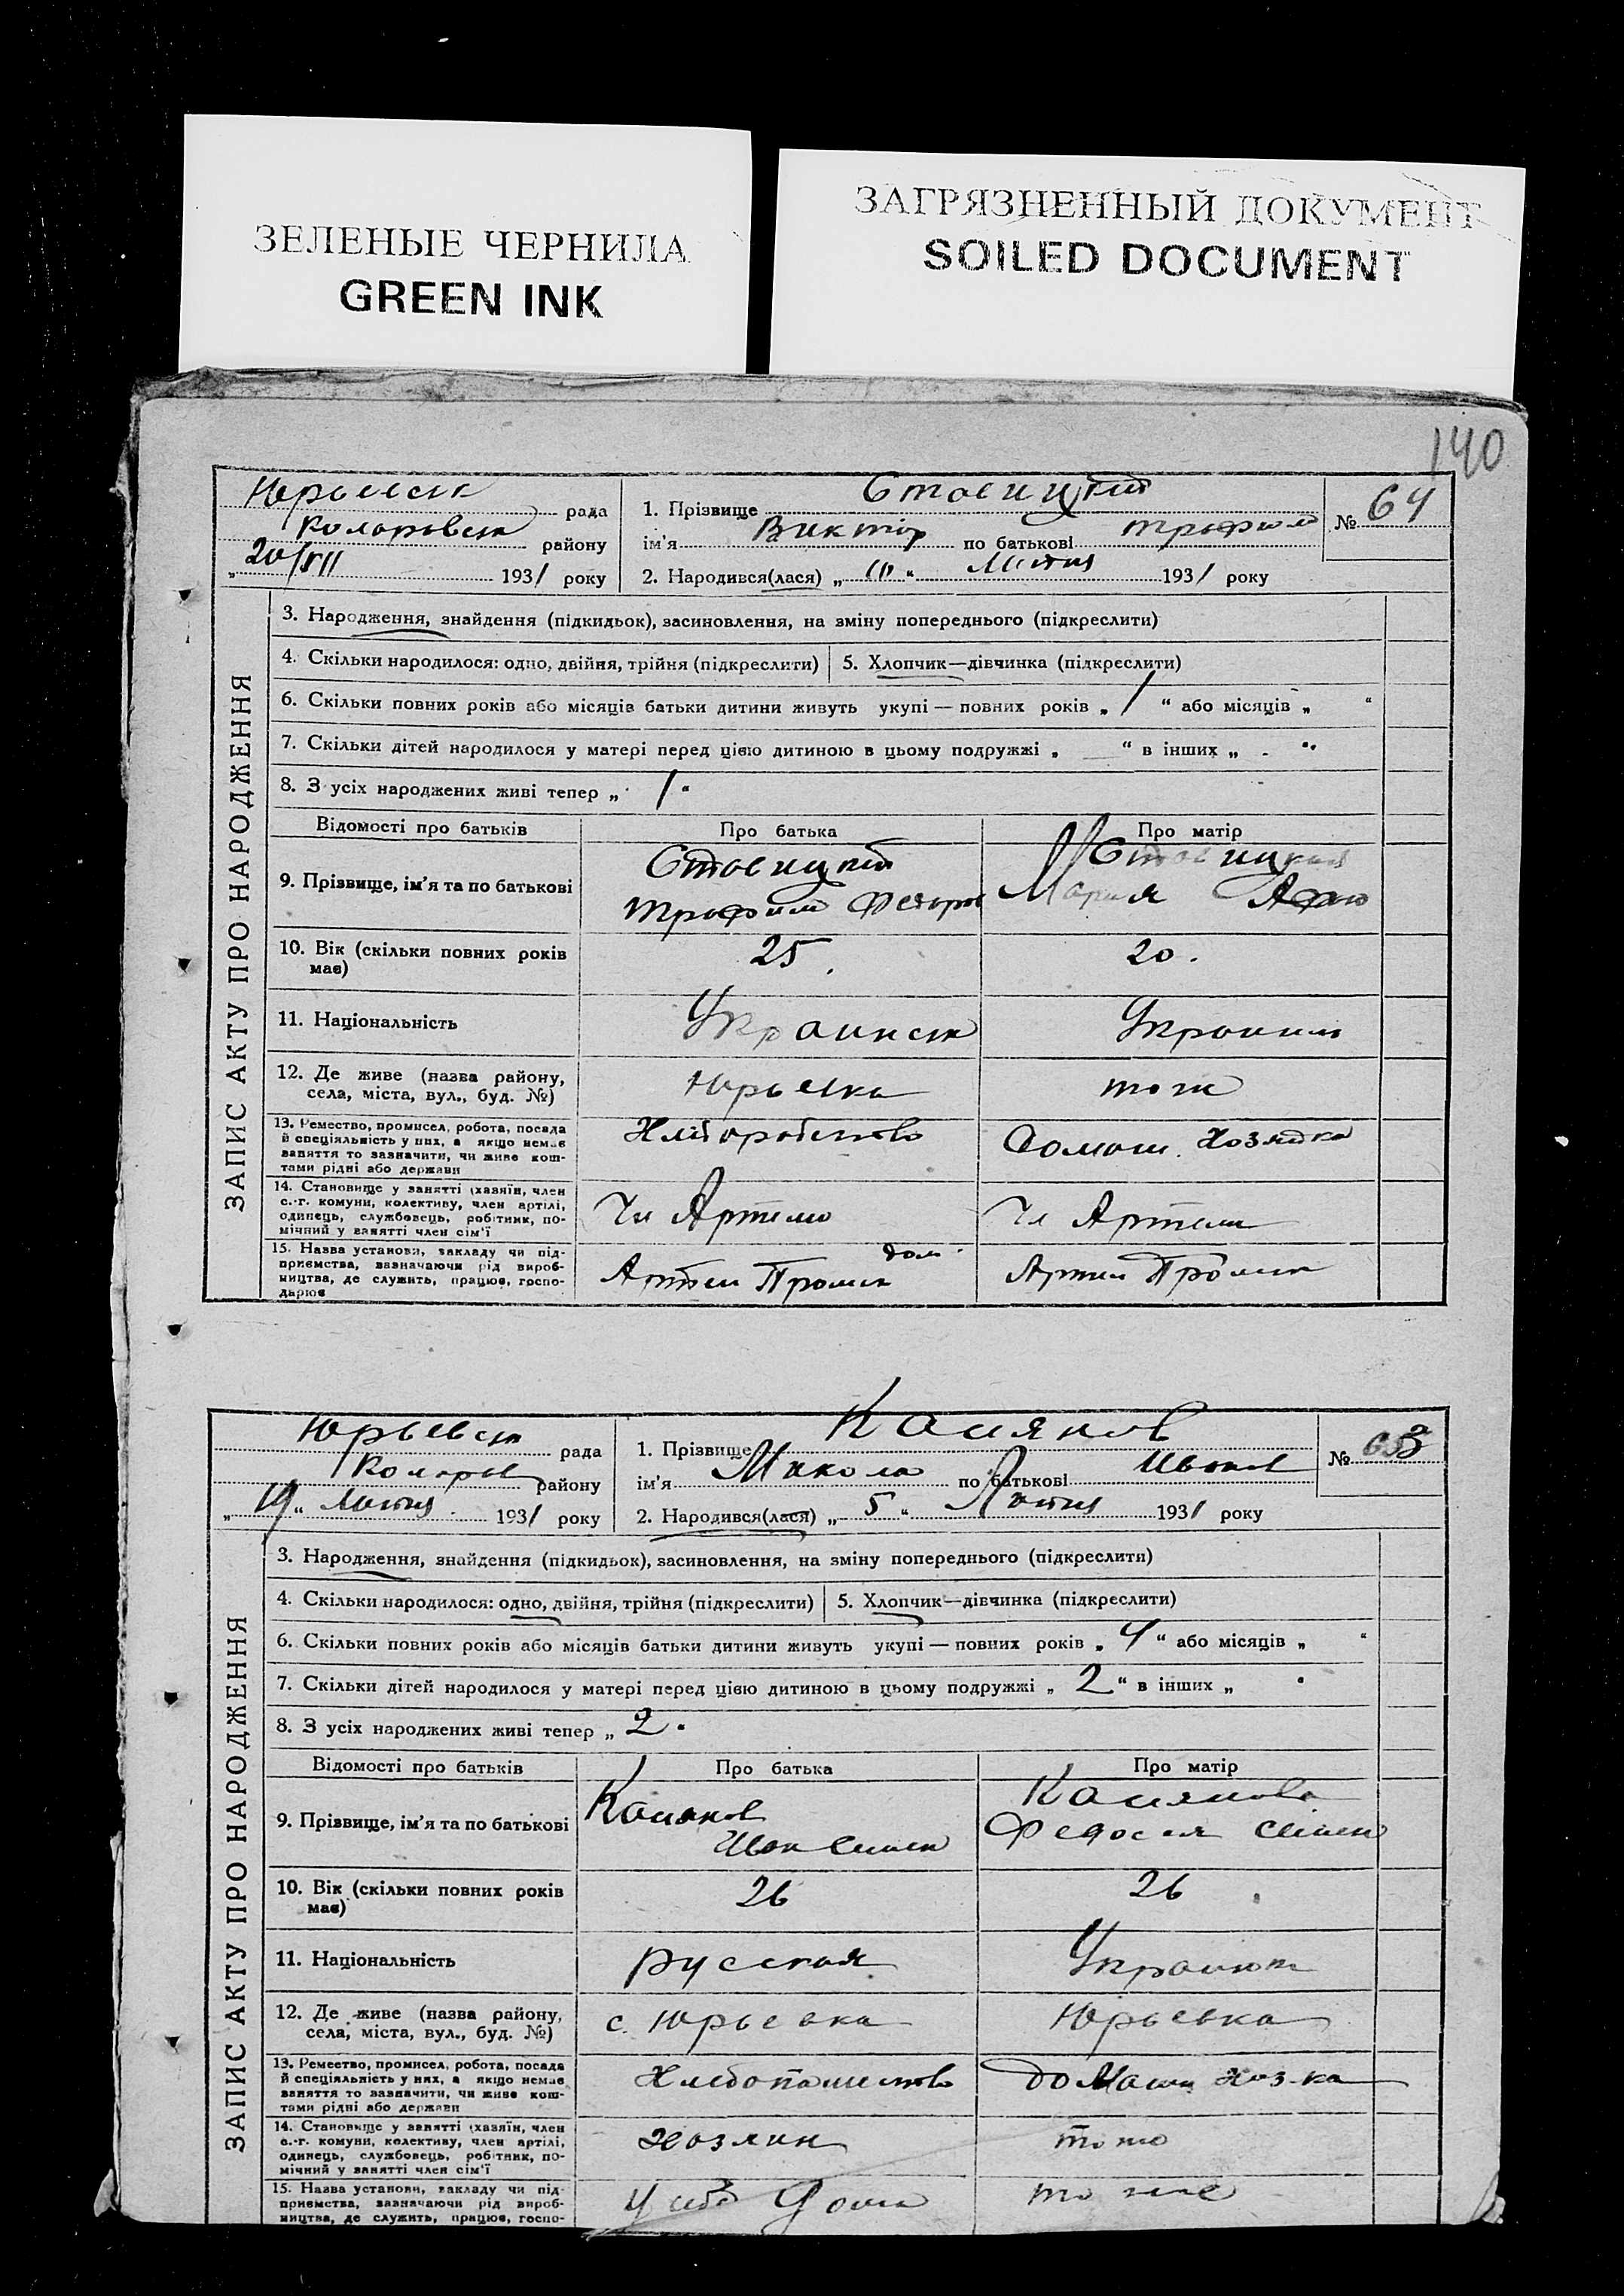 ЗЕЛЕНЫЕ ЧЕРНИЛА
GREEN INK
ЗАГРЯЗНЕННЫЙ ДОКУМЕНТ
SOILED DOCUMENT
140
ЗАПИС АКТУ ПРО НАРОДЖЕННЯ
рада
району
20/VII 1931 року
1. Прізвище Ставицкий
ім'я Виктор по батькові Трофим
№ 64
2. Народився(лася) „ “ 1931 року
3. Народження, знайдення (підкидьок), засиновлення, на зміну попереднього (підкреслити)
4. Скільки народилося: одно, двійня, трійня (підкреслити)
5. Хлопчик—дівчинка (підкреслити)
6. Скільки повних років або місяців батьки дитини живуть укупі — повних років „ 1 “ або місяців „ “
7. Скільки дітей народилося у матері перед цією дитиною в цьому подружжі „ — “ в інших „ - “
8. З усіх народжених живі тепер „ 1 “
Відомості про батьків
Про батька
Про матір
9. Прізвище, ім'я та по батькові
Ставицкий
Трофим Федоров
Ставицкая
Мария
10. Вік (скільки повних років має)
25.
20.
11. Національність
Украинск
12. Де живе (назва району, села, міста, вул., буд. №)
Юрьевка
тож
13. Ремество, промисел, робота, посада
й спеціяльність у них, а якщо немає
заняття то зазначити, чи живе кош-
тами рідні або держави
Домаш. Хозяйка
14. Становище у занятті (хазяїн, член
с.-г. комуни, колективу, член артілі,
одинець, службовець, робітник, по-
мічний у занятті член сім'ї
Чл Артели
Чл Артели
15. Назва установи, закладу чи під-
приємства, зазначаючи рід вироб-
ництва, де служить, працює, госпо-
дарює
ЗАПИС АКТУ ПРО НАРОДЖЕННЯ
Юрьевск рада
району
„19“ Лютня 1931 року
1. Прізвище Касянов
ім'я Микола по батькові Иванов
№
2. Народився(лася) „ 5 “ Лютня 1931 року
3. Народження, знайдення (підкидьок), засиновлення, на зміну попереднього (підкреслити)
4. Скільки народилося: одно, двійня, трійня (підкреслити)
5. Хлопчик—дівчинка (підкреслити)
6. Скільки повних років або місяців батьки дитини живуть укупі — повних років „ 4 “ або місяців „ “
7. Скільки дітей народилося у матері перед цією дитиною в цьому подружжі „ 2 “ в інших „ “
8. З усіх народжених живі тепер „ 2 “
Відомості про батьків
Про батька
Про матір
9. Прізвище, ім'я та по батькові
Касянов
Иван Семен
Касянова
Федосия Семен
10. Вік (скільки повних років має)
26
26
11. Національність
русская
12. Де живе (назва району, села, міста, вул., буд. №)
с. Юрьевка
Юрьевка
13. Ремество, промисел, робота, посада
й спеціяльність у них, а якщо немає
заняття то зазначити, чи живе кош-
тами рідні або держави
Хлебопашество
Домаш хоз-ка
14. Становище у занятті (хазяїн, член
с.-г. комуни, колективу, член артілі,
одинець, службовець, робітник, по-
мічний у занятті член сім'ї
Хозяин
15. Назва установи, закладу чи під-
приємства, зазначаючи рід вироб-
ництва, де служить, працює, госпо-
у себя дома
то же